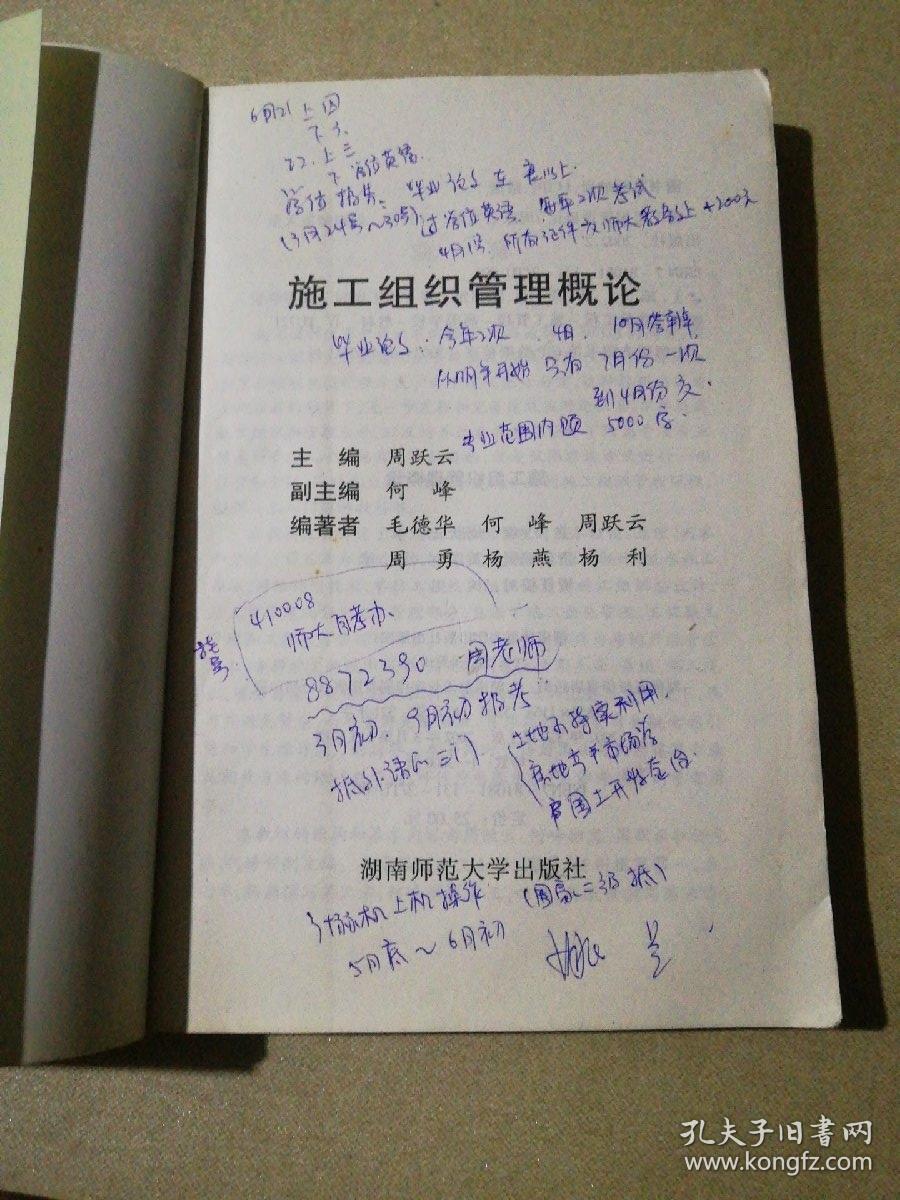 6月21 上四
22. 上三
下 学位英语.
学位 报名: 毕业论文 在 良以上.
(3月24号~30号) 过学位英语 每年2次考试
4月1号. 所有证件交师大教务处 +200元
施工组织管理概论
毕业论文: 今年2次 4月. 10月答辩
从明年开始 只有 7月份一次
到4月份交.
专业范围内颂 5000字.
主 编 周跃云
副主编 何 峰
编著者 毛德华 何 峰 周跃云
周 勇 杨 燕 杨 利
410008
师大自考办.
8872390 周老师
3月初. 9月初报考
抵外语的三门
土地可持续利用.
房地产市场学
中国土开发整治.
湖南师范大学出版社
计算机上机操作 (国家二级抵)
5月底~6月初
孔夫子旧书网
www.kongfz.com